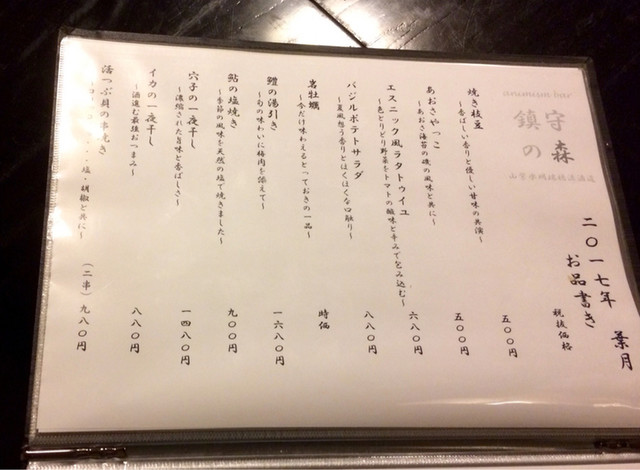 animism bar
鎮守
の森
二〇一七年 葉月
お品書き
税抜価格
焼き枝豆
～香ばしい香りと優しい甘味の共演～
五〇〇円
あおさやっこ
～あおさ海苔の磯の風味と共に～
五〇〇円
エスニック風ラタトゥイユ
～色とりどり野菜をトマトの酸味と辛みで包み込む～
六八〇円
バジルポテトサラダ
～夏風想う香りとほくほくな口触り～
八八〇円
岩牡蠣
～今だけ味わえるとっておきの一品～
時価
鱧の湯引き
～旬の味わいに梅肉を添えて～
一六八〇円
鮎の塩焼き
～季節の風味を天然の塩で焼きました～
九〇〇円
穴子の一夜干し
～濃縮された旨味と香ばしさ～
一四八〇円
イカの一夜干し
～酒進む最強おつまみ～
八八〇円
活つぶ貝の串焼き
塩・胡椒と共に～
（二串）九八〇円